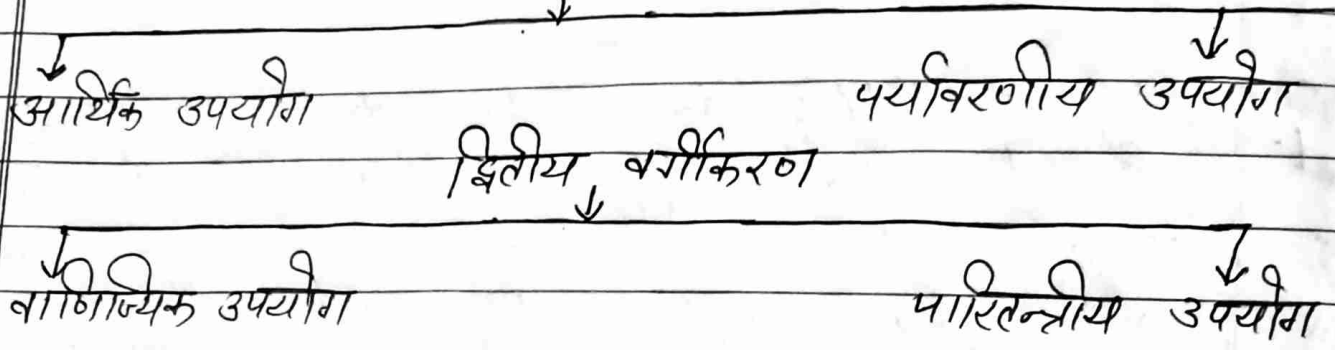 आर्थिक उपयोग पर्यावरणीय उपयोग
द्वितीय वर्गीकरण
वाणिज्यिक उपयोग पारितन्त्रीय उपयोग